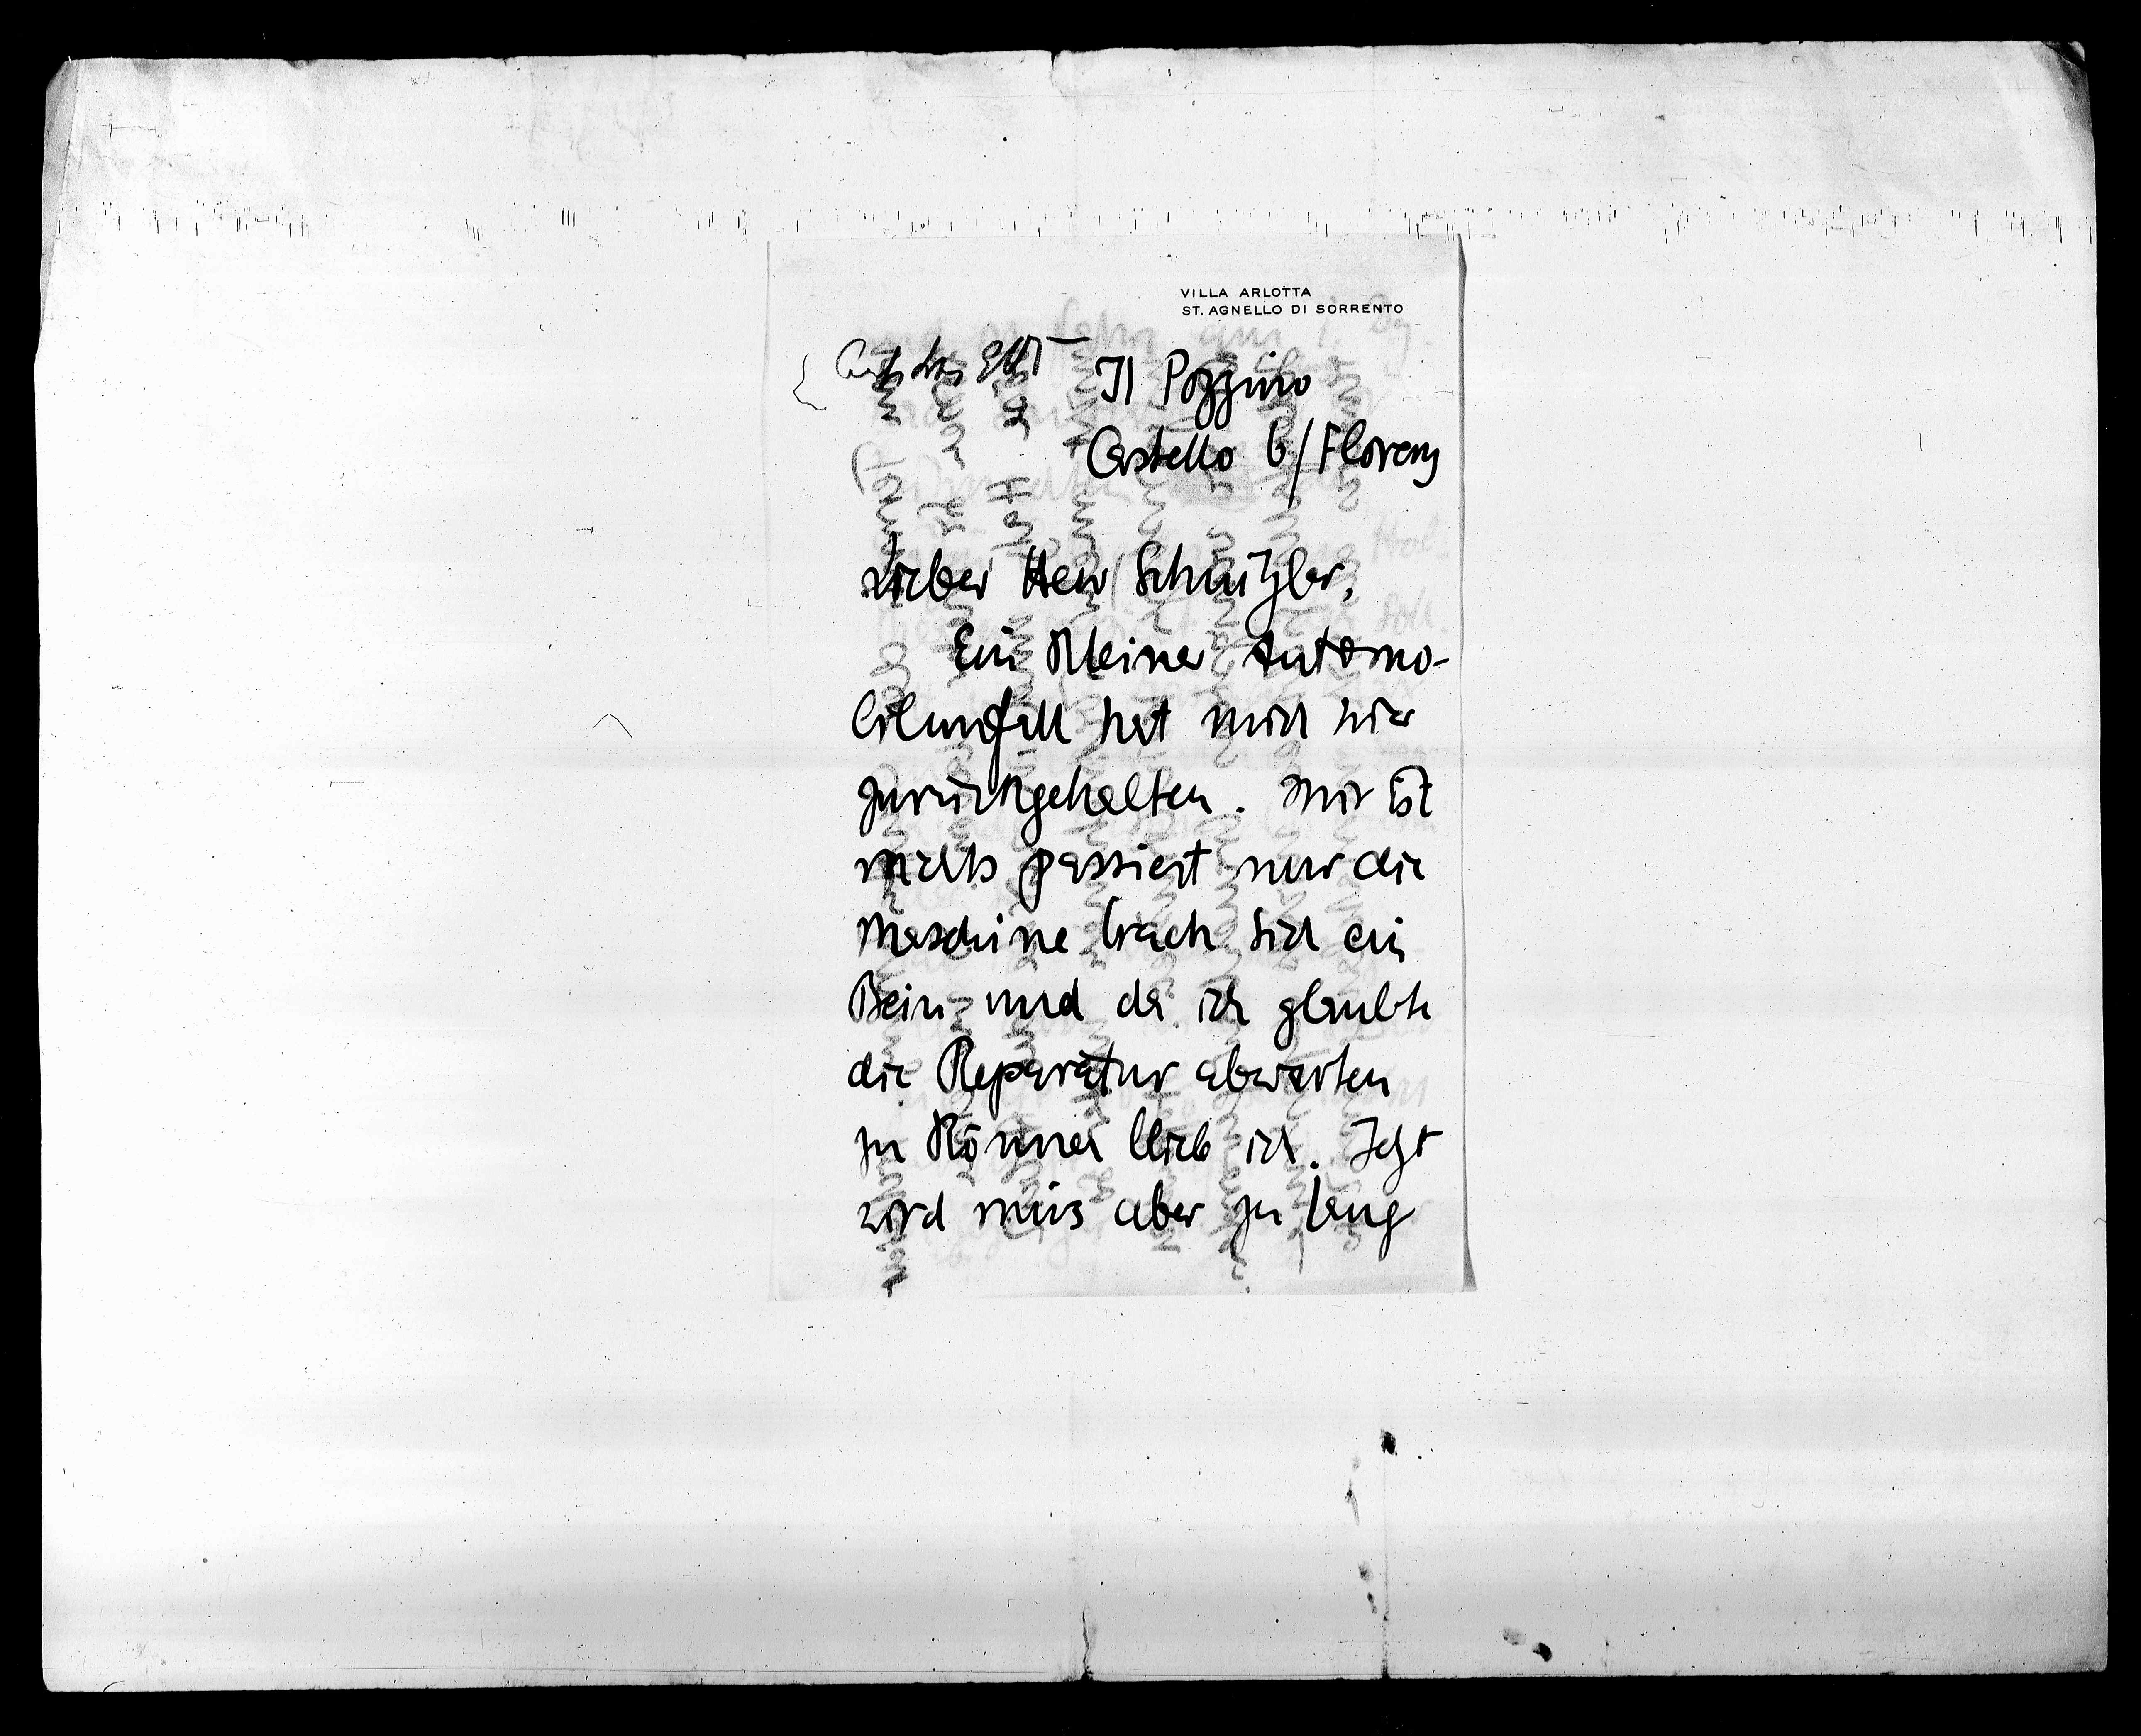 VILLA ARLOTTA
ST. AGNELLO DI SORRENTO
Il Pozzino
Castello b/Florenz
Lieber Herr Schnitzler,
Ein kleiner Automo-
bilunfall hat mich hier
zurückgehalten. Mir ist
nichts passiert nur die
Maschine brach sich ein
Bein und da ich glaubte
die Reparatur abwarten
zu können blieb ich. Jetzt
wird mirs aber zu lang